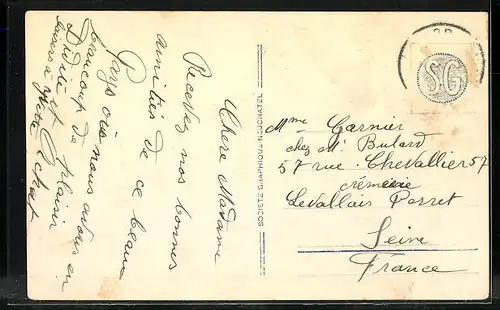 Chere Madame
Recevez nos bonnes
amitiés de ce beau
Pays ou nous avons eu
beaucoup de plaisir
SOCIÉTÉ GRAPHIQUE NEUCHATEL
SG
Mme Garnier
chez Mr Bulard
57 rue Chevallier 57
crémerie
Levallois Perret
Seine
France